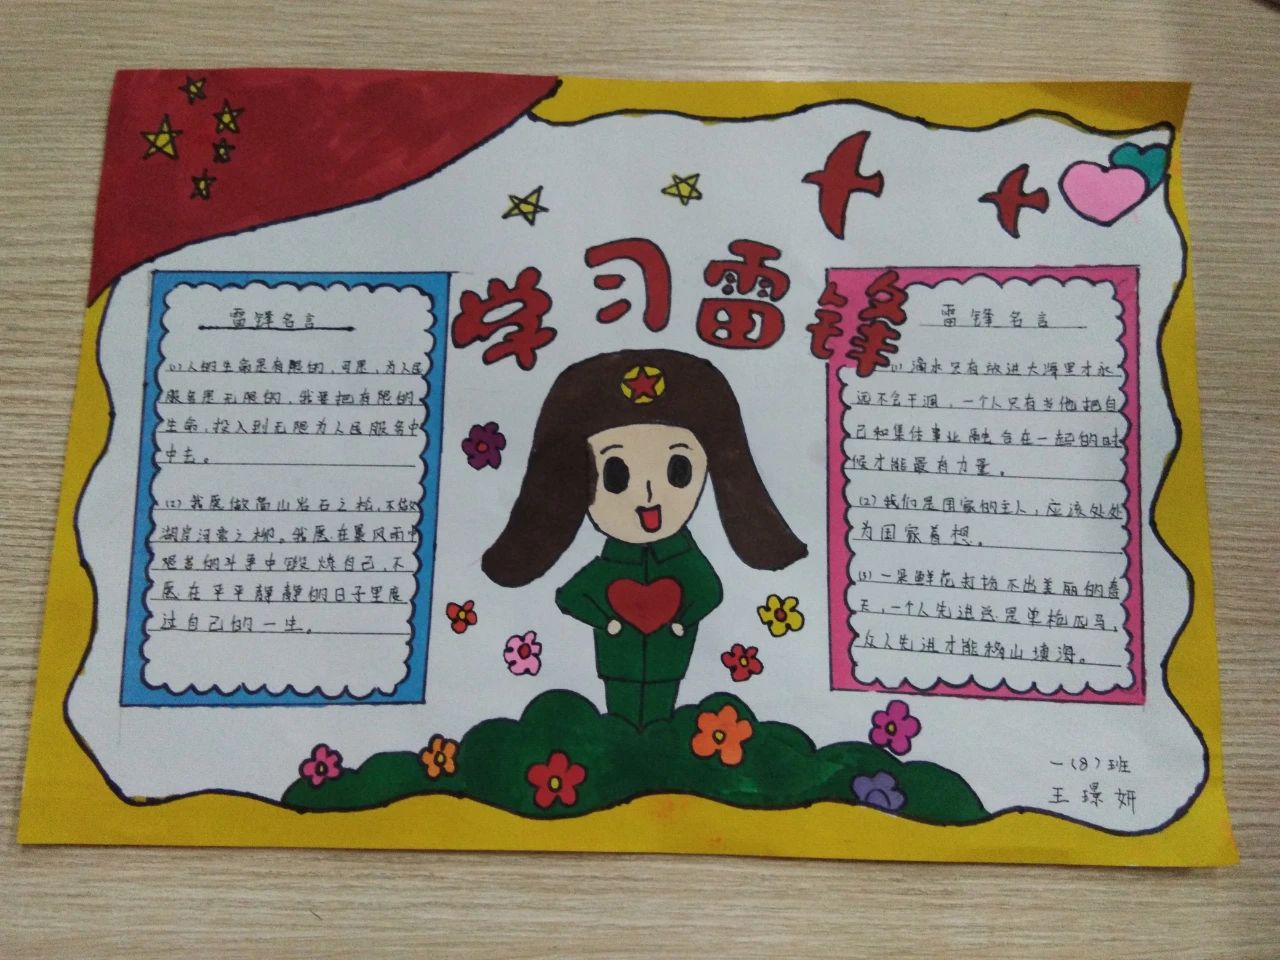 学习雷锋
雷锋名言
(1)人的生命是有限的,可是,为人民
服务是无限的,我要把有限的
生命,投入到无限为人民服务中
中去。
(2)我愿做高山岩石之松,不做
湖岸河旁之柳。我愿在暴风雨中
艰苦的斗争中锻炼自己,不
愿在平平静静的日子里度
过自己的一生。
雷锋名言
(1)滴水只有放进大海里才永
远不会干涸,一个人只有当他把自
己和集体事业融合在一起的时
候才能最有力量。
(2)我们是国家的主人,应该处处
为国家着想。
(3)一朵鲜花打扮不出美丽的春
天,一个人先进总是单枪匹马,
众人先进才能移山填海。
一(8)班
王璟妍